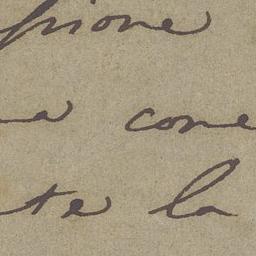 ssione
a come
te la